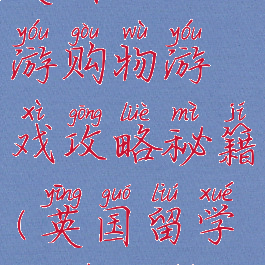 yóu gòu wù yóu
游购物游
xì gōng lüè mì jí
戏攻略秘籍
yīng guó liú xué
(英国留学